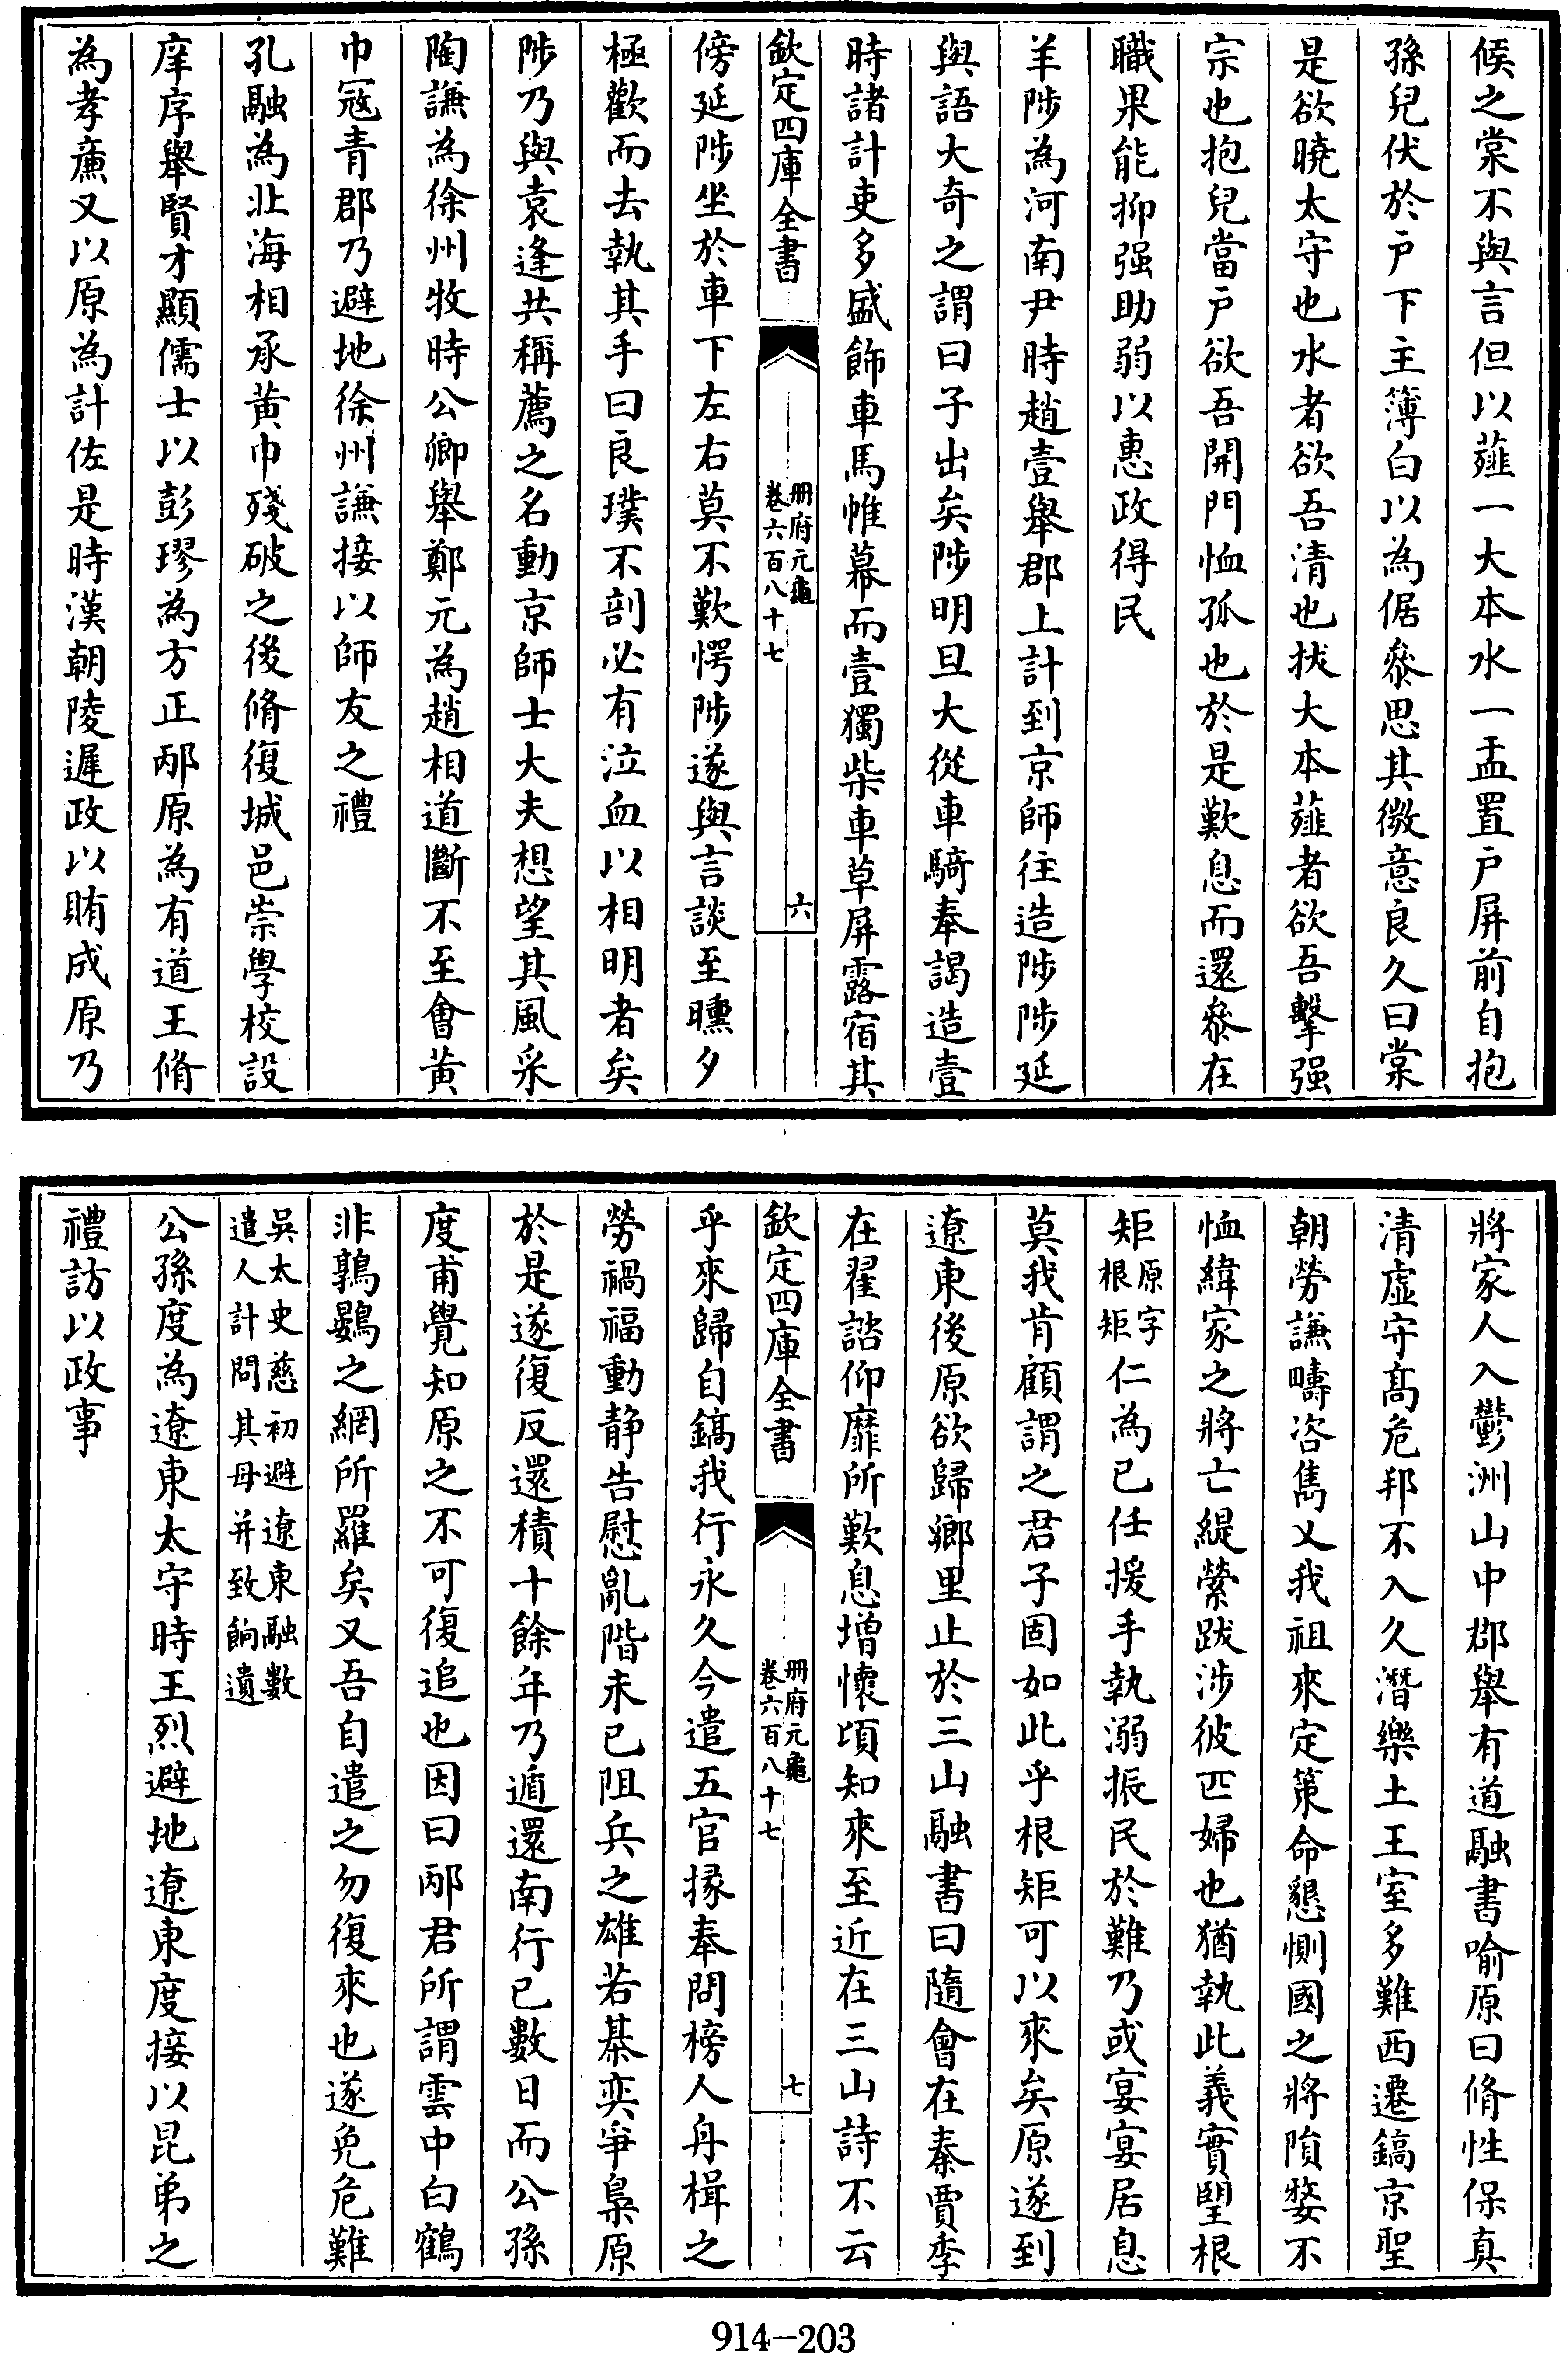 候之棠不與言但以薤一大本水一盂置戶屏前自抱
孫兒伏於戶下主簿白以為倨叅思其微意良久曰棠
是欲曉太守也水者欲吾清也拔大本薤者欲吾擊强
宗也抱兒當戶欲吾開門恤孤也於是歎息而還叅在
職果能抑强助弱以惠政得民
羊陟為河南尹時趙壹舉郡上計到京師往造陟陟延
與語大奇之謂曰子出矣陟明旦大從車騎奉謁造壹
時諸計吏多盛飾車馬帷幕而壹獨柴車草屏露宿其
欽定四庫全書
册府元龜
卷六百八十七
六
傍延陟坐於車下左右莫不歎愕陟遂與言談至曛夕
極歡而去執其手曰良璞不剖必有泣血以相明者矣
陟乃與袁逢共稱薦之名動京師士大夫想望其風采
陶謙為徐州牧時公卿舉鄭元為趙相道斷不至會黄
巾冦青郡乃避地徐州謙接以師友之禮
孔融為北海相承黄巾殘破之後脩復城邑崇學校設
庠序舉賢才顯儒士以彭璆為方正邴原為有道王脩
為孝亷又以原為計佐是時漢朝陵遲政以賄成原乃
將家人入鬱洲山中郡舉有道融書喻原曰脩性保真
清虚守髙危邦不入久潛樂土王室多難西遷鎬京聖
朝勞謙疇咨雋乂我祖來定策命懇惻國之將隕嫠不
恤緯家之將亡緹縈跋涉彼匹婦也猶執此義實望根
矩原字根矩仁為已任援手執溺振民於難乃或宴宴居息
莫我肯顧謂之君子固如此乎根矩可以來矣原遂到
遼東後原欲歸鄉里止於三山融書曰隨會在秦賈季
在翟諮仰靡所歎息增懷頃知來至近在三山詩不云
欽定四庫全書
册府元龜
卷六百八十七
七
乎來歸自鎬我行永久今遣五官掾奉問榜人舟楫之
勞禍福動静告慰亂階未已阻兵之雄若棊奕爭梟原
於是遂復反還積十餘年乃遁還南行已數日而公孫
度甫覺知原之不可復追也因曰邴君所謂雲中白鶴
非鶉鷃之網所羅矣又吾自遣之勿復來也遂免危難
吳太史慈初避遼東融數
遣人計問其母并致餉遺
公孫度為遼東太守時王烈避地遼東度接以昆弟之
禮訪以政事
914-203